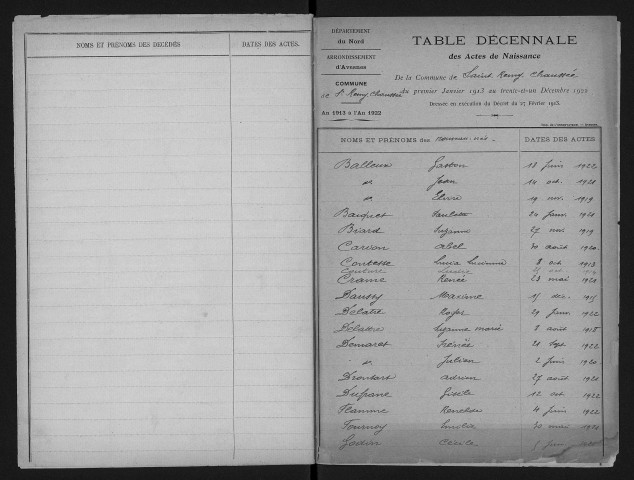 NOMS ET PRÉNOMS DES DÉCÉDÉS DATES DES ACTES.
DÉPARTEMENT
du Nord
ARRONDISSEMENT
d'Avesnes
COMMUNE
de St Remy Chaussée
An 1913 à l'An 1922
TABLE DÉCENNALE
des Actes de Naissance
De la Commune de Saint Remy Chaussée
du premier Janvier 1913 au trente-et-un Décembre 1922
Dressée en exécution du Décret du 17 Février 1913.
NOMS ET PRÉNOMS des nouveau-nés. DATES DES ACTES
Balleux Gaston 18 juin 1922
d° Jean 14 oct. 1921
d° 19 nov. 1919
Bauquet Paulette 24 janv. 1921
Biard Suzanne 27 nov. 1919
Carvon Abel 30 août 1920
Contesse Lucia 8 oct 1913
Couture
Crame Renée 23 mai 1920
Daussy Mariane 15 déc. 1915
Delatte Roger 29 janv. 1922
Delattre Suzanne Marie 8 août 1918
Demaret 21 Sept 1922
d° Julien 2 juin 1920
Adrien 27 août 1921
Dufrane Gisèle 12 oct 1922
Flamme 4 juin 1922
Fournoy Emilia 30 mai 1921
Godin Cécile